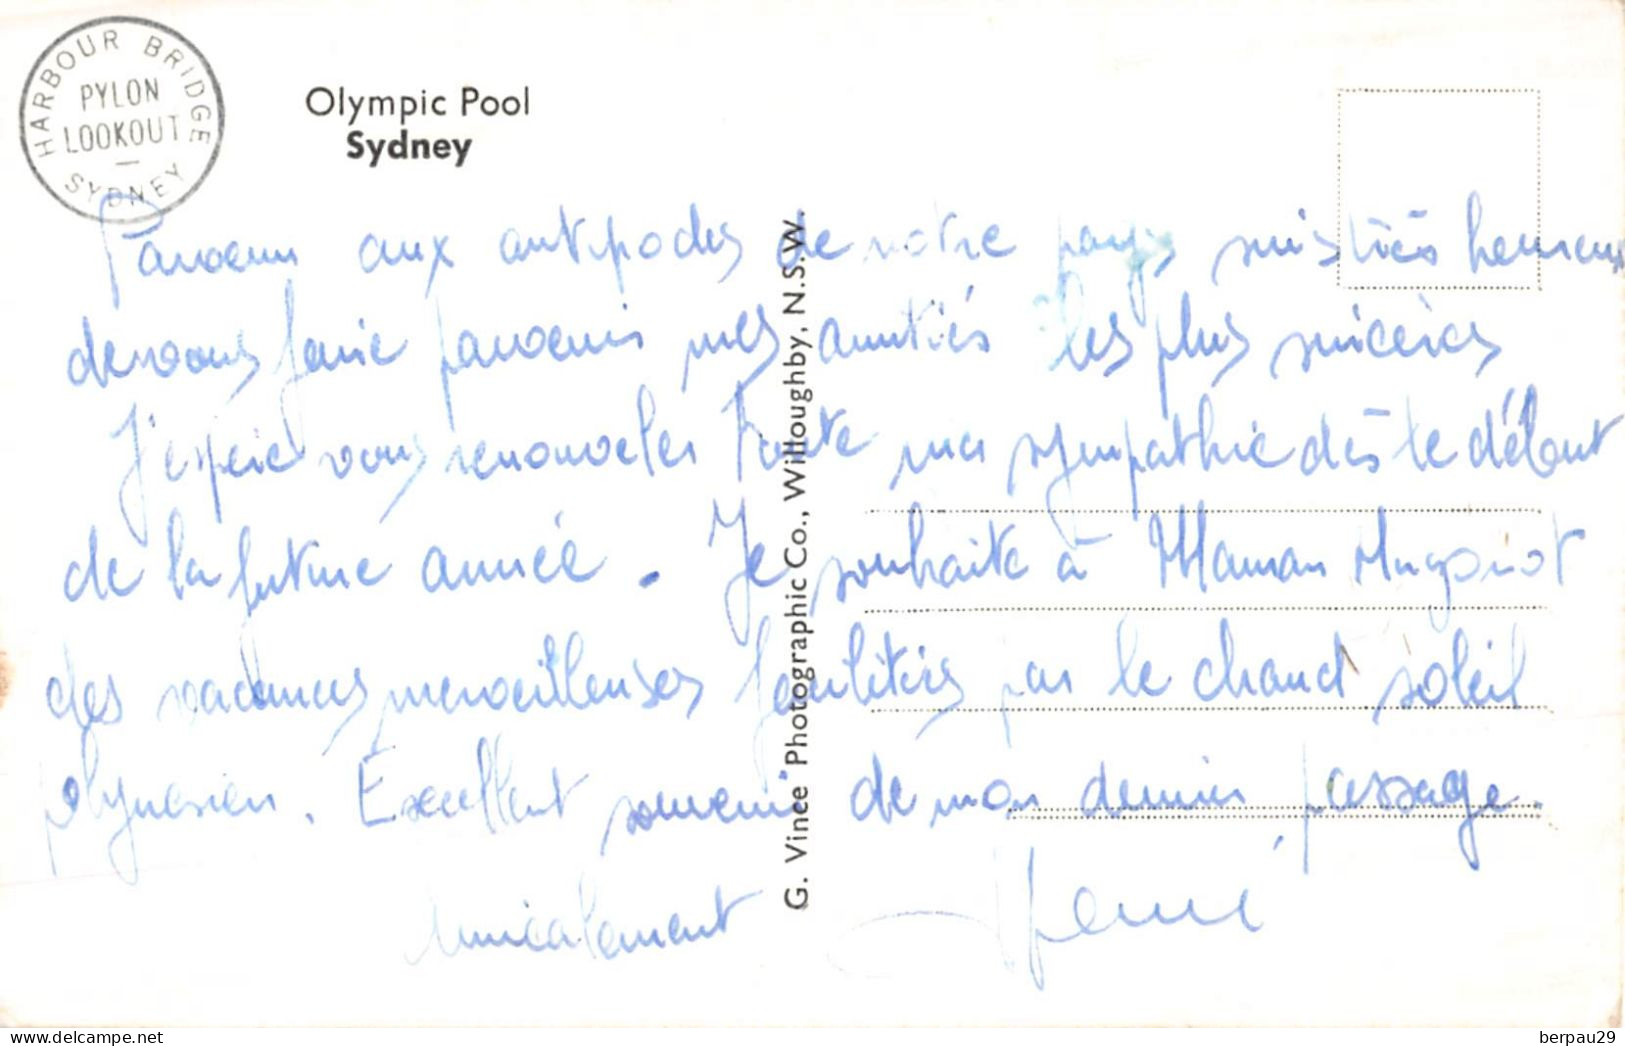 HARBOUR BRIDGE
PYLON
LOOKOUT
SYDNEY
Olympic Pool
Sydney
Parvenu aux antipodes de notre pays suis très heureux
de vous faire parvenir mes amitiés les plus sincères
J'espère vous renouveler toute ma sympathie dès le début
de la future année. Je souhaite à Maman
des vacances merveilleuses facilitées par le chaud soleil
polynesien. Excellent souvenir de mon dernier passage.
Amicalement
G. Vince Photographic Co., Willoughby, N.S.W.
berpau29